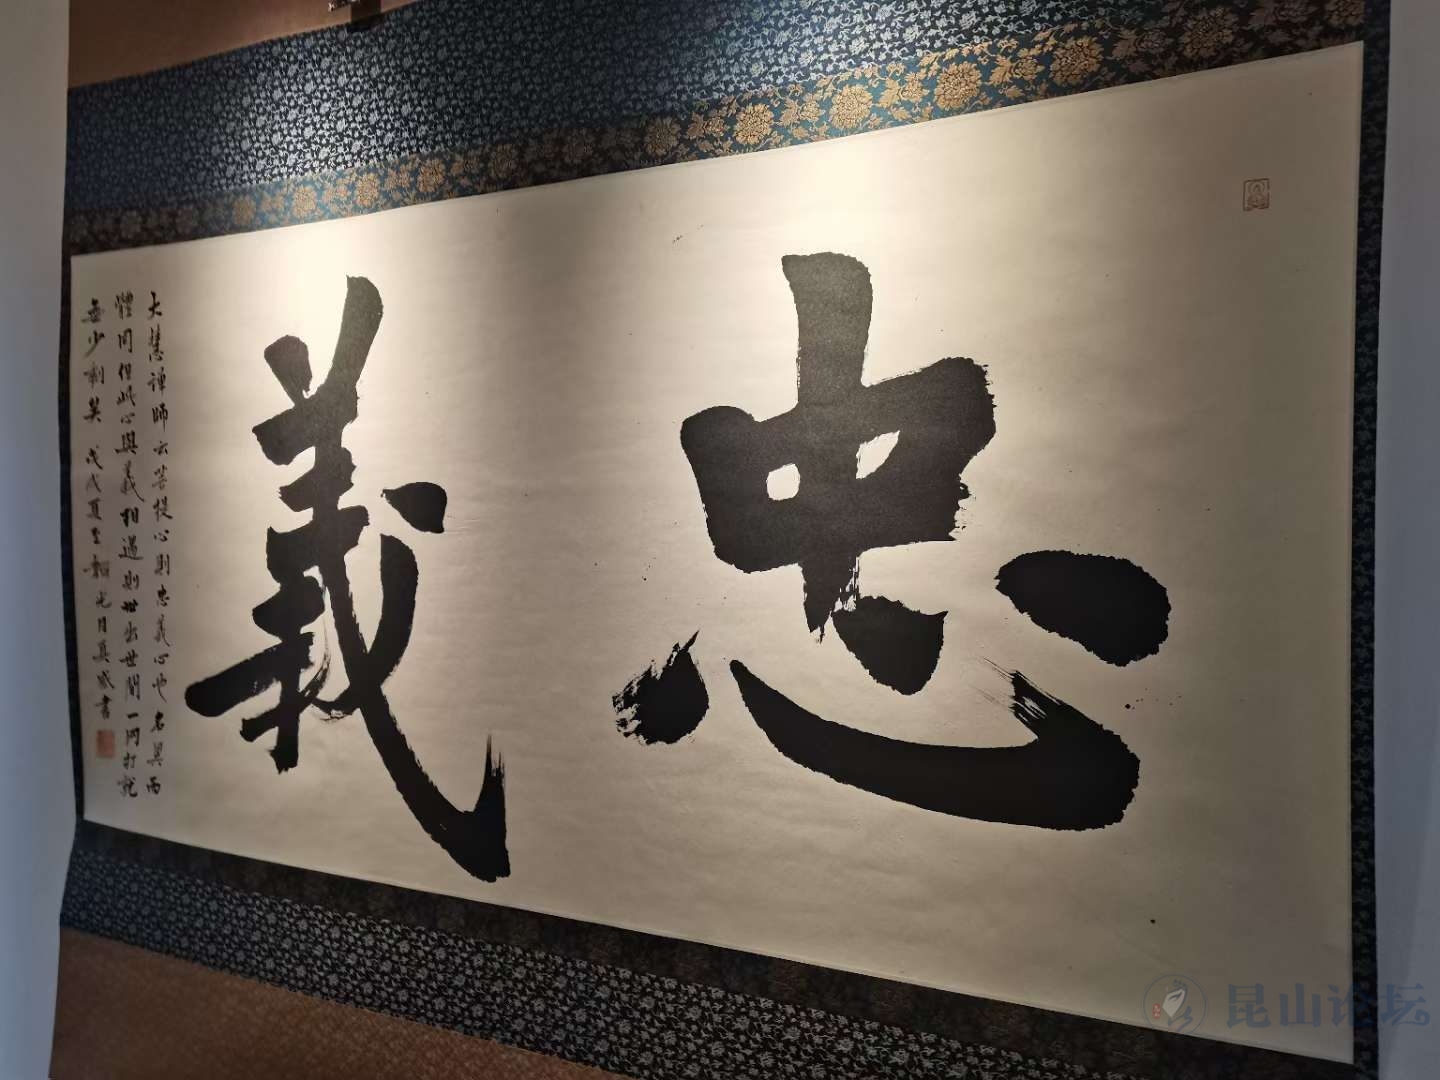 忠義
大慧禅師云菩提心則忠義心也名異而
體同但此心與義相遇則世出世間一网打就
無少剩矣 戊戌夏至
書
昆山论坛